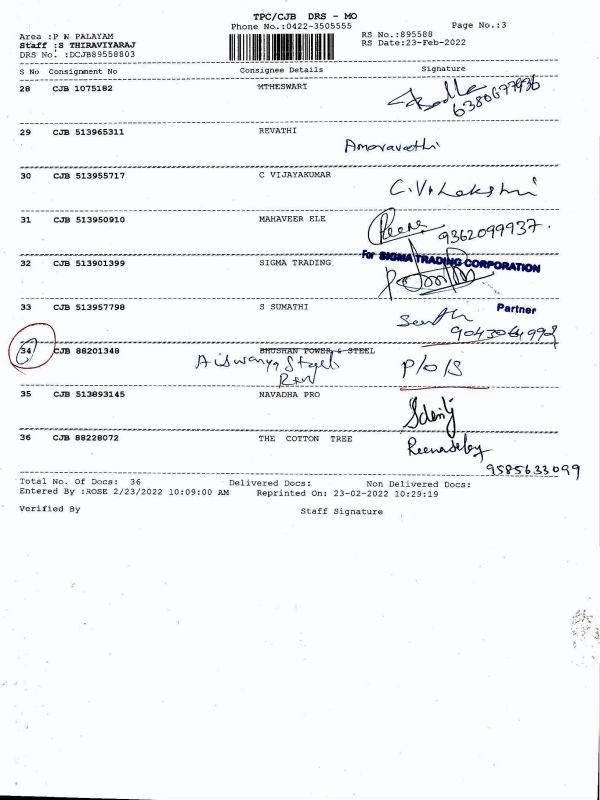 TPC/CJB DRS - MO
Phone No.:0422-3505555
Page No.:3
Area :P N PALAYAM
RS No.:895588
Staff :S THIRAVIYARAJ
RS Date:23-Feb-2022
DRS No. :DCJB89558803
S No Consignment No Consignee Details Signature
28 CJB 1075182 MTHESWARI
6380677936
29 CJB 513965311 REVATHI
Amaravathi
30 CJB 513955717 C VIJAYAKUMAR
31 CJB 513950910 MAHAVEER ELE
9362099937.
For SIGMA TRADING CORPORATION
32 CJB 513901399 SIGMA TRADING
33 CJB 513957798 S SUMATHI
Partner
34 CJB 88201348 BHUSHAN POWER & STEEL
P/O/S
35 CJB 513893145 NAVADHA PRO
36 CJB 88228072 THE COTTON TREE
9585633099
Total No. Of Docs: 36 Delivered Docs: Non Delivered Docs:
Entered By :ROSE 2/23/2022 10:09:00 AM Reprinted On: 23-02-2022 10:29:19
Verified By Staff Signature